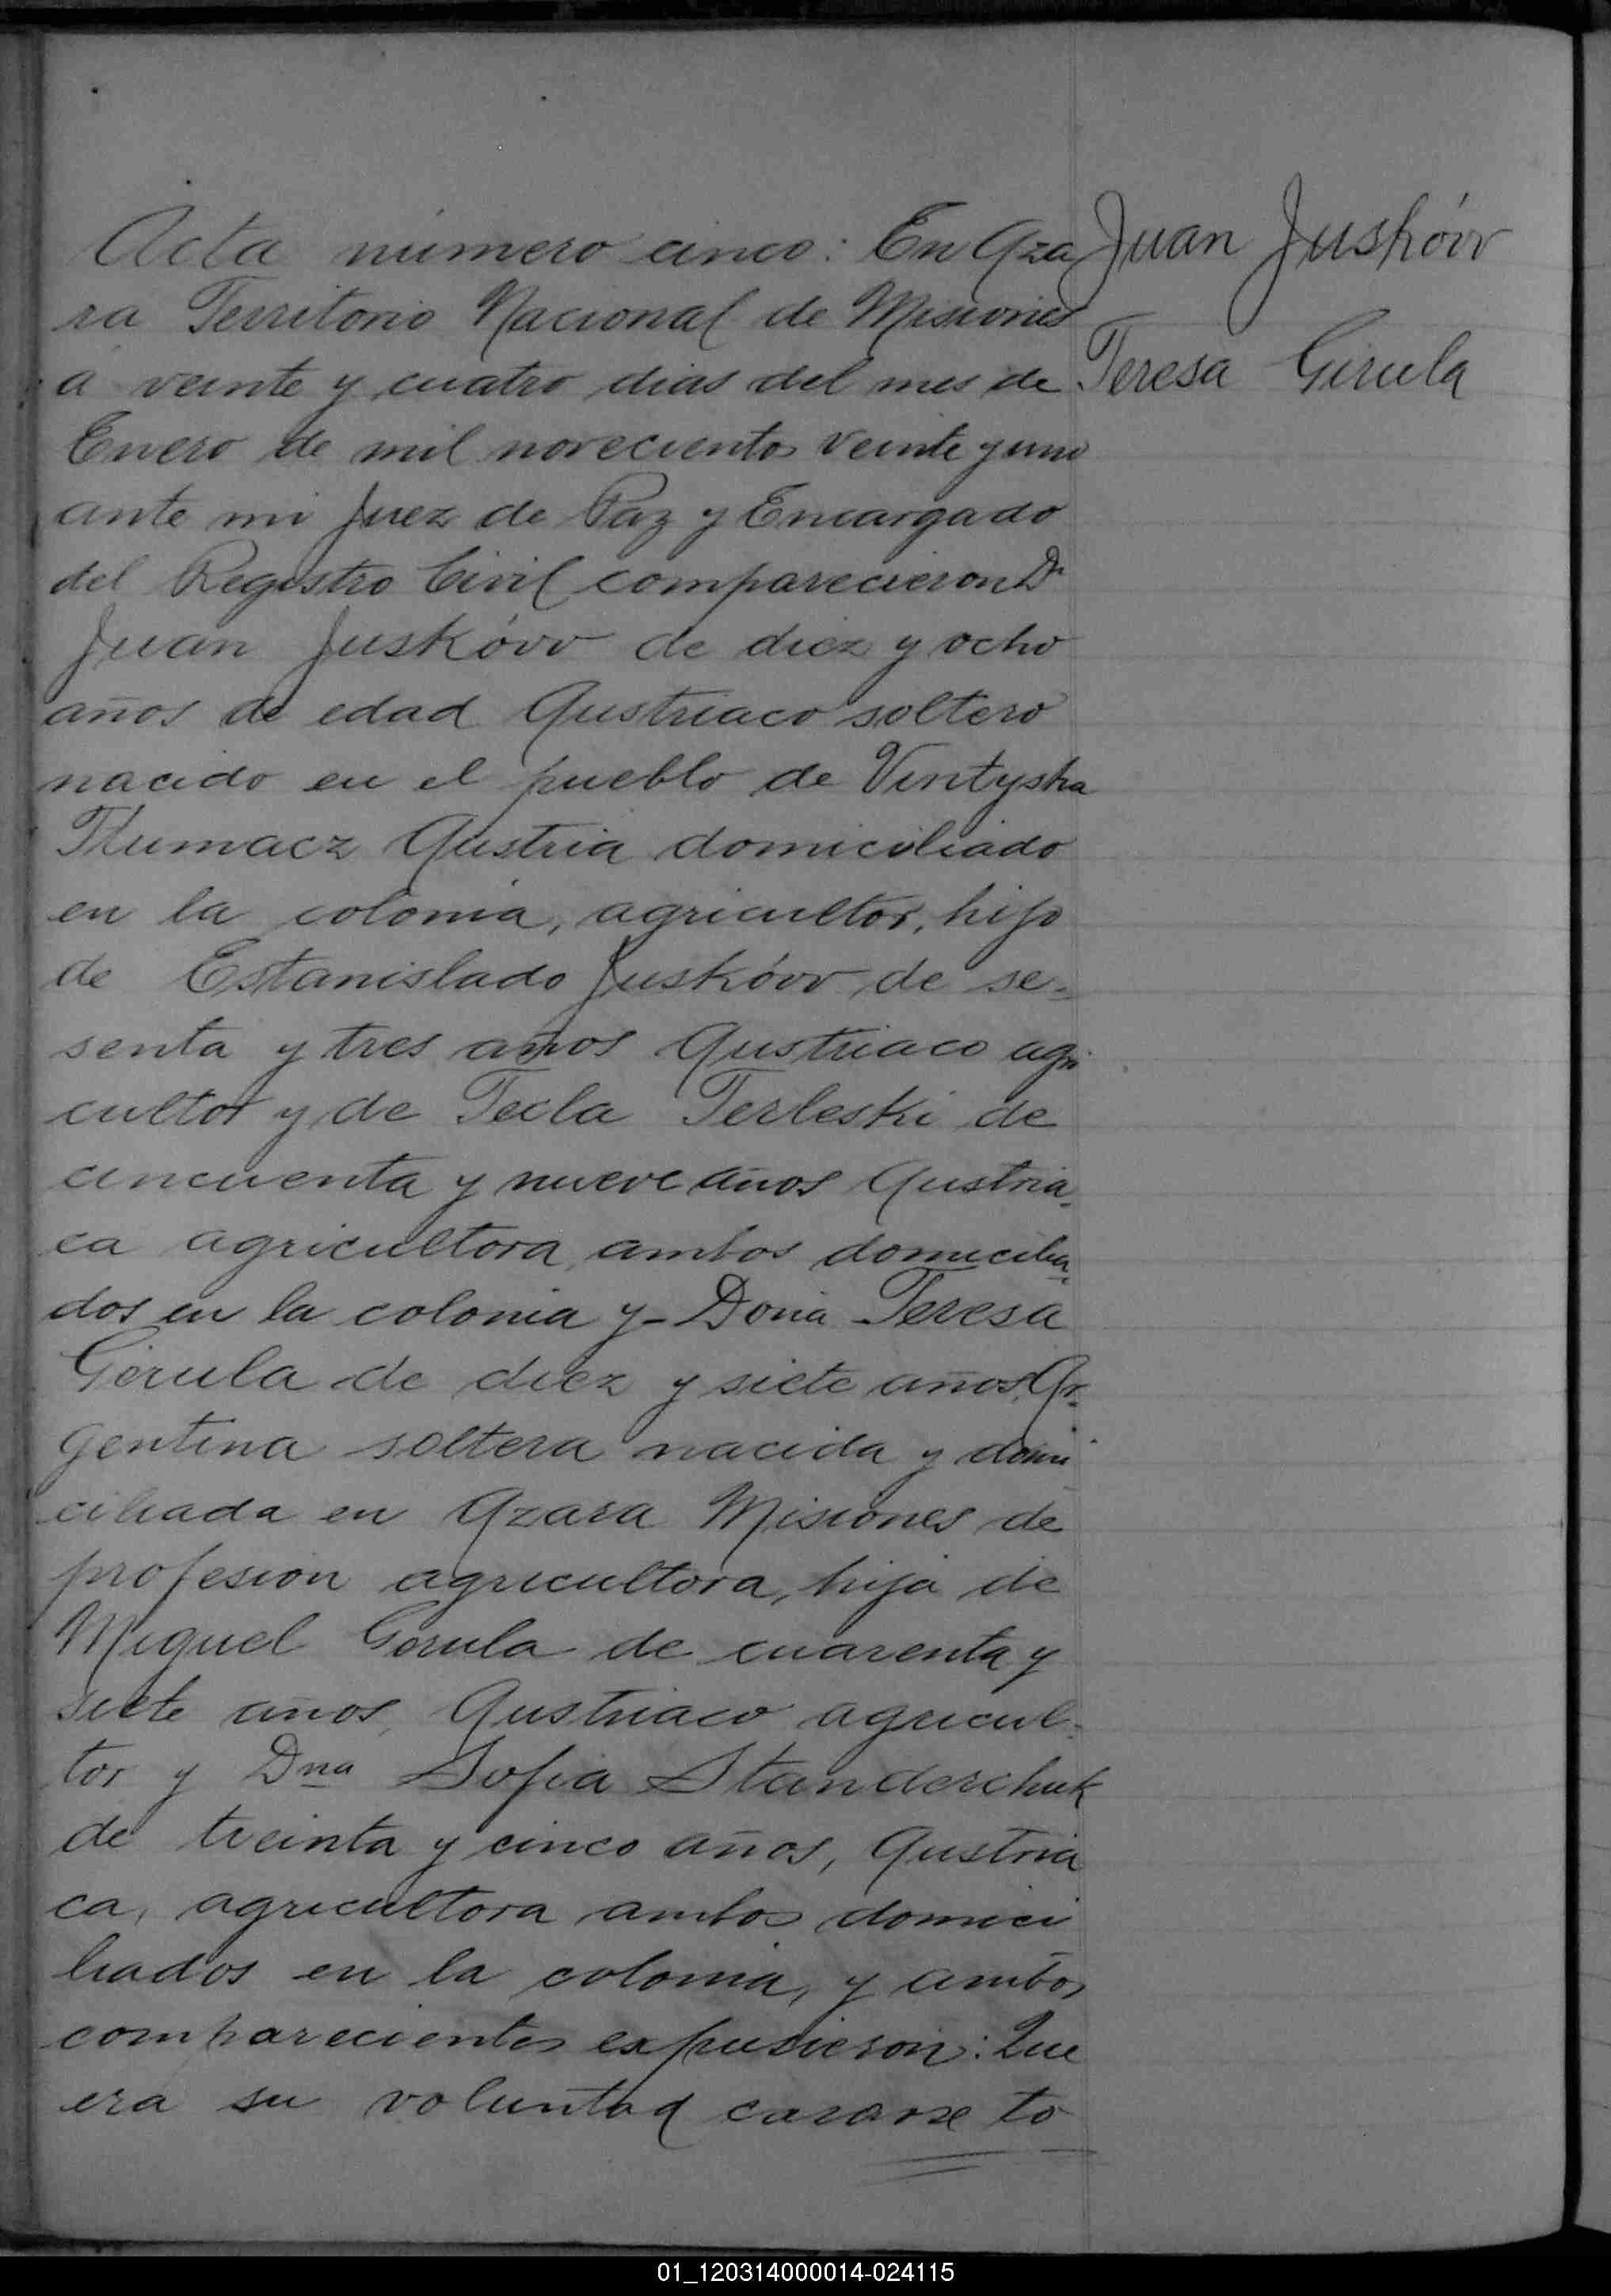 Acta número cinco: En Aza
ra Territorio Nacional de Misiones
a veinte y cuatro dias del mes de
Enero de mil novecientos veinte y uno
ante mi Juez de Paz y Encargado
del Registro Civil comparecieron Dn
Juan Juskóvv de diez y ocho
años de edad Austriaco soltero
nacido en el pueblo de
Tlumacz Austria domiciliado
en la colonia, agricultor, hijo
de Estanislado Juskóvv de se-
senta y tres años Austriaco agri
cultor y de Tecla Terleski de
cincuenta y nueve años Austria-
ca agricultora, ambos domicilia-
dos en la colonia y - Doña Teresa
Gerula de diez y siete años, Ar-
gentina soltera nacida y domi
ciliada en Azara Misiones de
profesion agricultora, hija de
Miguel Gerula de cuarenta y
siete años, Austriaco agricul-
tor y Dna Sofia Standerchuk
de treinta y cinco años, Austria
ca, agricultora ambos domici
liados en la colonia, y ambos
comparecientes expusieron: Que
era su voluntad casarse to
Juan Juskóvv
Teresa Girula
01_120314000014-024115